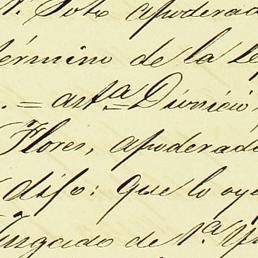 Soto apoderado
término de la le
= anta Dionicio
Flores, apoderado
dijo: que lo oye
Juzgado de 1ª